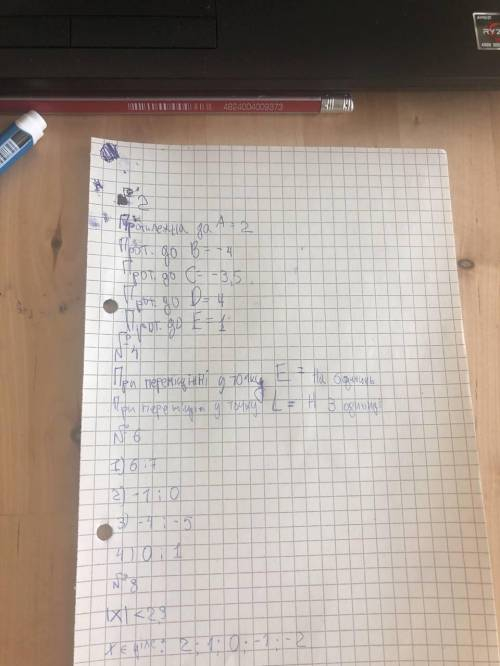 RYZ
4824004009373
№ 2
Протилежна за A = 2
Прот. до B = -4
Прот. до C = -3,5
Прот. до D = 4
Прот. до E = 1
№ 4
При переміщені у точку E = на одиниць
При у точку L = Н 3 одиниці
№ 6
1) 6 ; 7
2) -1 ; 0
3) -4 ; -5
4) 0 ; 1
№ 8
|X| < 2,9
X є 2 ; 1 ; 0 ; -1 ; -2